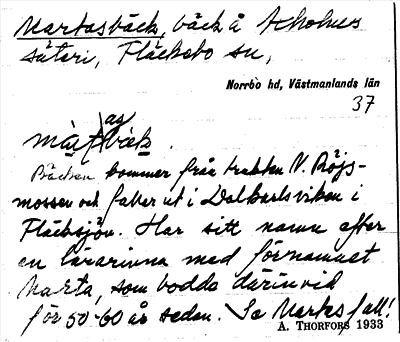 Martasbäck, bäck å Askholmes
säteri, Fläckebo sn,
Norrbo hd, Västmanlands län
37
as
märtbäck
Bäcken kommer från trakten N. Röjs-
mossen och faller ut i Dalkarlsviken i
Fläcksjön. Har sitt namn efter
en lärarinna med förnamnet
Marta, som bodde därinvid
för 50-60 år sedan. Se Martas fall!
A. THORFORS 1933